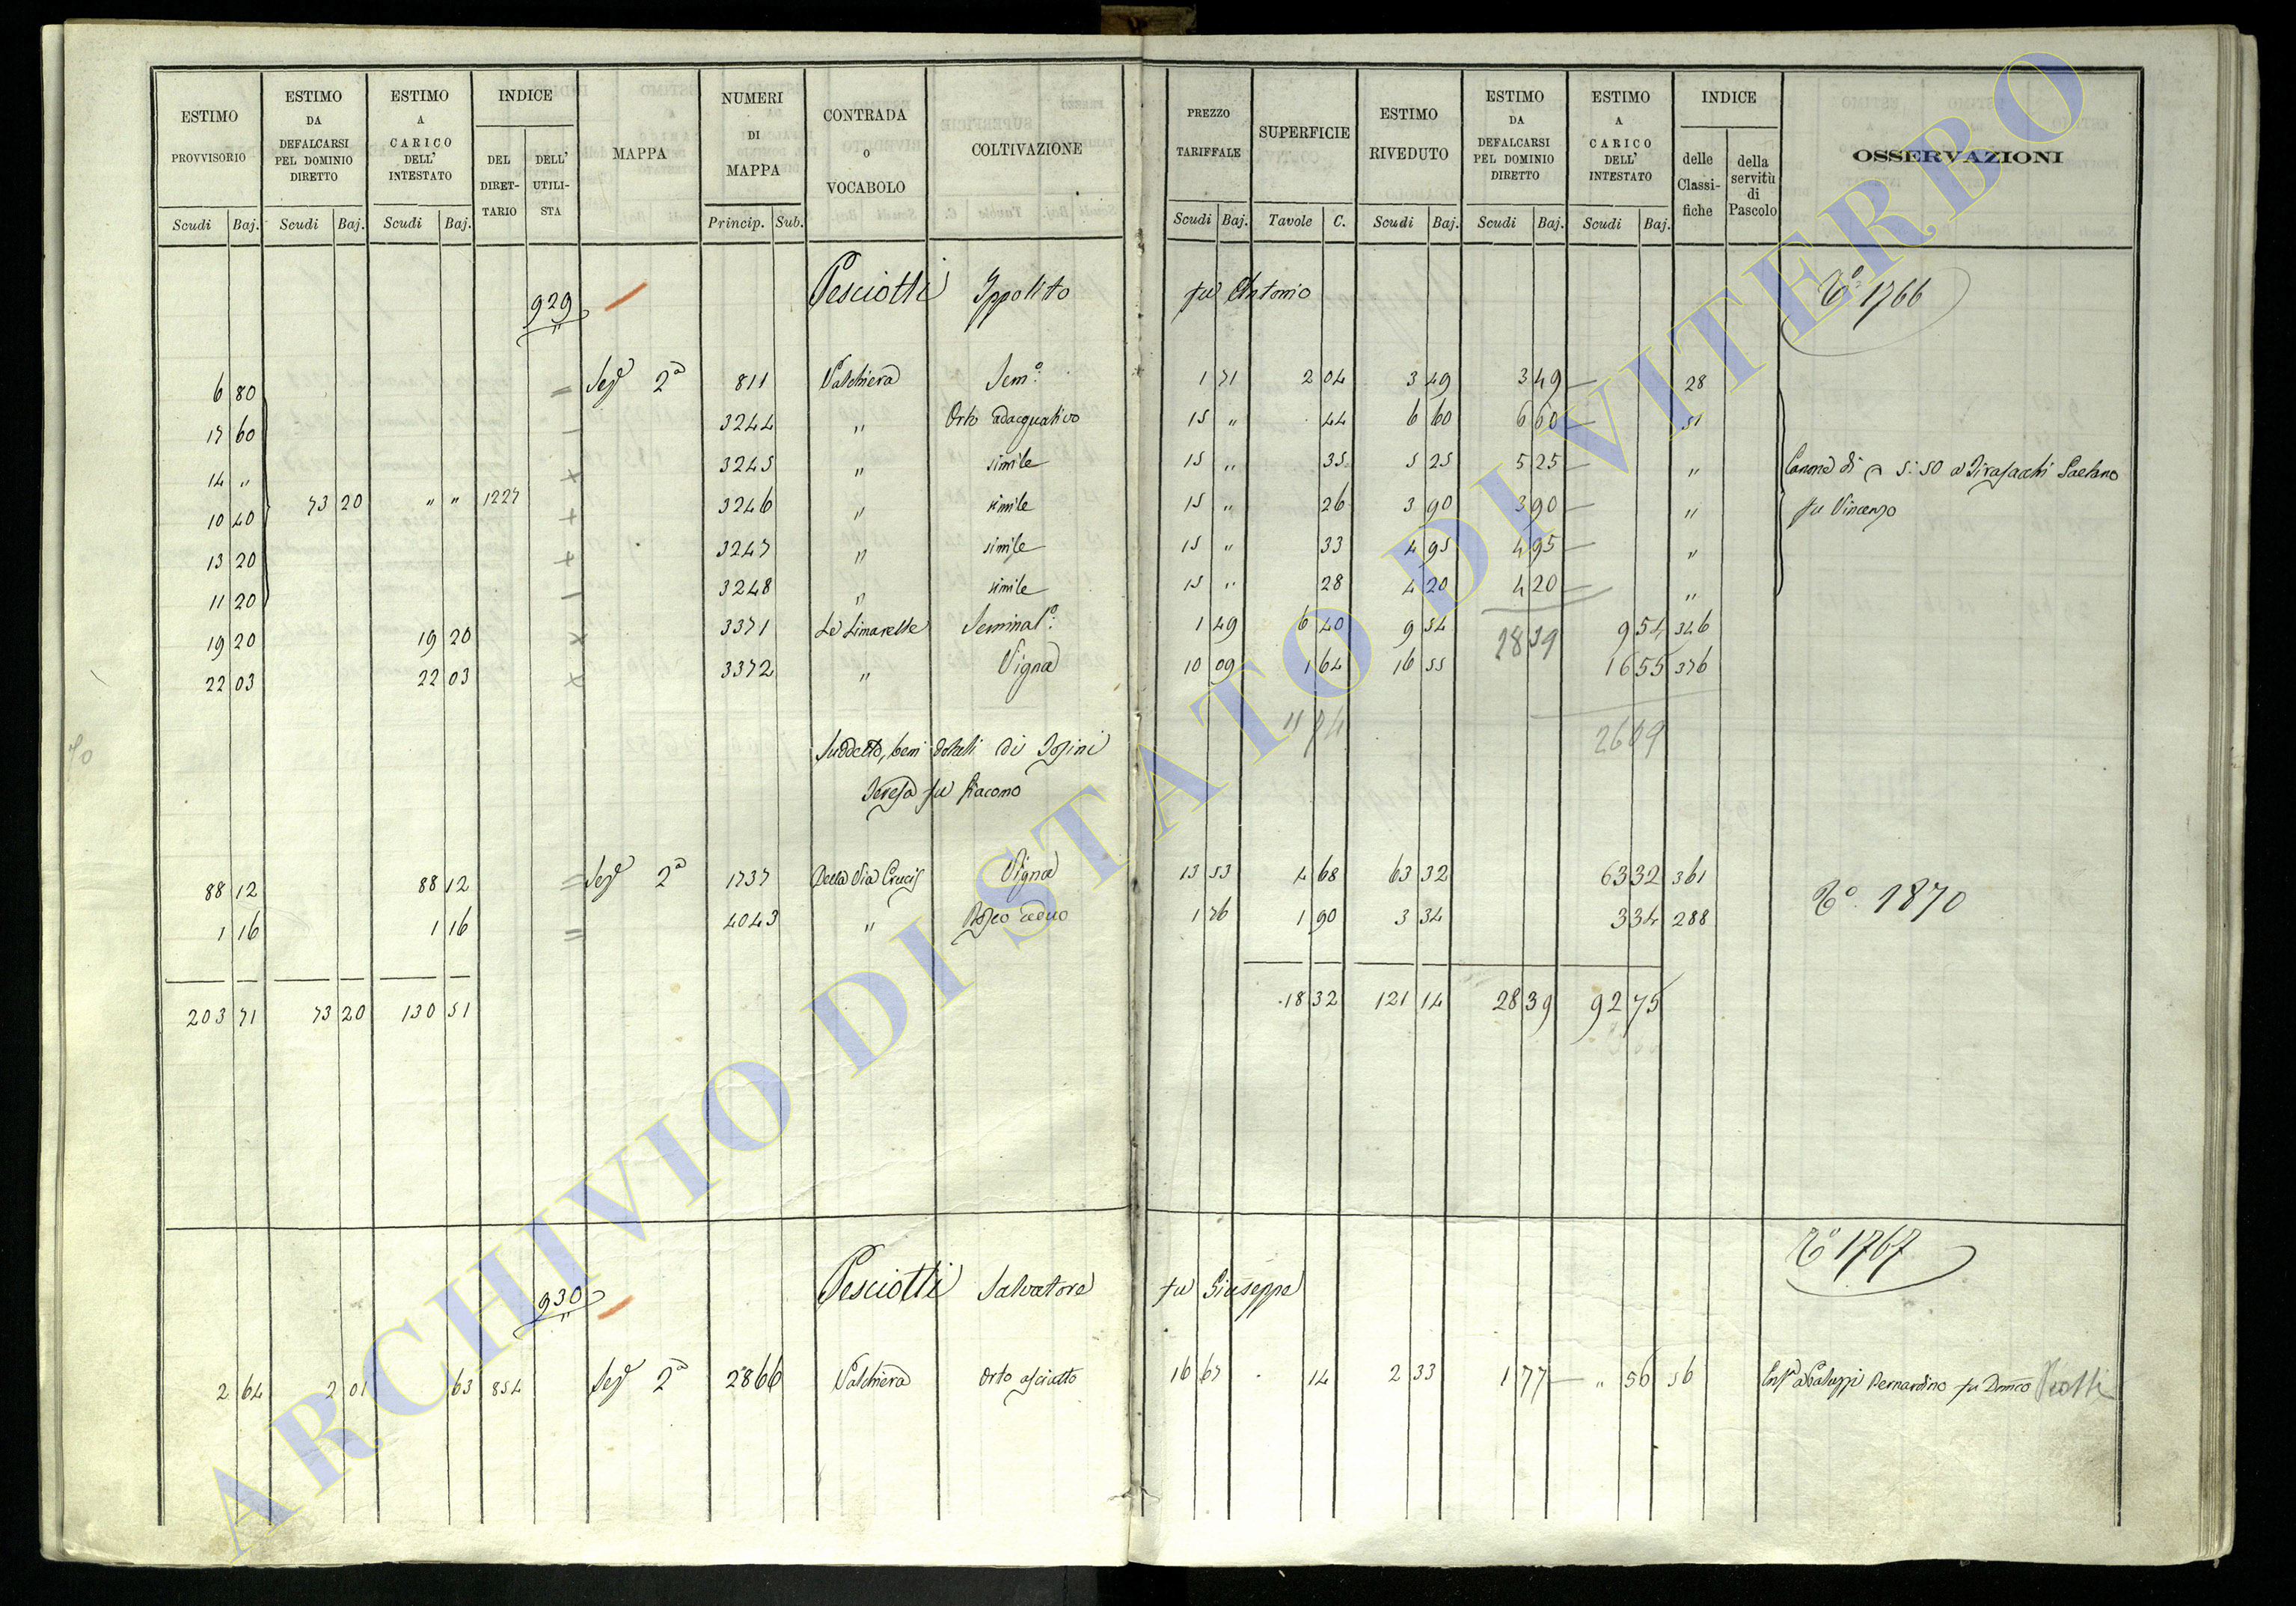 ESTIMO PROVVISORIO Scudi Baj. ESTIMO DA DEFALCARSI PEL DOMINIO DIRETTO Scudi Baj. ESTIMO A CARICO DELL' INTESTATO Scudi Baj. INDICE DEL DIRETTARIO DELL' UTILISTA MAPPA NUMERI DI MAPPA Princip. Sub. CONTRADA O VOCABOLO COLTIVAZIONE PREZZO TARIFFALE Scudi Baj. SUPERFICIE Tavole C. ESTIMO RIVEDUTO Scudi Baj. ESTIMO DA DEFALCARSI PEL DOMINIO DIRETTO Scudi Baj. ESTIMO A CARICO DELL' INTESTATO Scudi Baj. INDICE delle Classifiche della servitù di Pascolo OSSERVAZIONI
929 Pesciotti Ippolito fu Antonio 1766
6 80 = Sez.e 2a 811 Valchiera Sem.o 1 71 2 04 3 49 3 49 28
17 60 3244 " Orto adacquativo 15 " 44 6 60 6 60 51
14 " 3245 " simile 15 " 35 5 25 5 25 " Canone di 5:50 a Tirasacchi Gaetano
10 40 73 20 " " 1227 3246 " simile 15 " 26 3 90 3 90 " fu Vincenzo
13 20 3247 " simile 15 " 33 4 95 4 95 "
11 20 3248 " simile 15 " 28 4 20 4 20 "
19 20 19 20 3371 Le Limarelle Seminat.o 1 49 6 40 9 54 28 39 9 54 346
22 03 22 03 3372 " Vigna 10 09 1 64 16 55 16 55 376
11 74 26 09
Suddetto, beni dotali di
Teresa fu Giacomo
88 12 88 12 = Sez.e 2a 1737 Della Via Crucis Vigna 13 53 4 68 63 32 63 32 361
1 16 1 16 = 4043 " 1 76 1 90 3 34 3 34 288 1870
203 71 73 20 130 51 18 32 121 14 28 39 92 75
930 Pesciotti Salvatore fu Giuseppe 1767
2 64 2 01 63 854 Sez.e 2a 2866 Valchiera Orto asciutto 16 67 14 2 33 1 77 " 56 56 Enf.a a Galuppi Bernardino fu Dom.co
ARCHIVIO DI STATO DI VITERBO